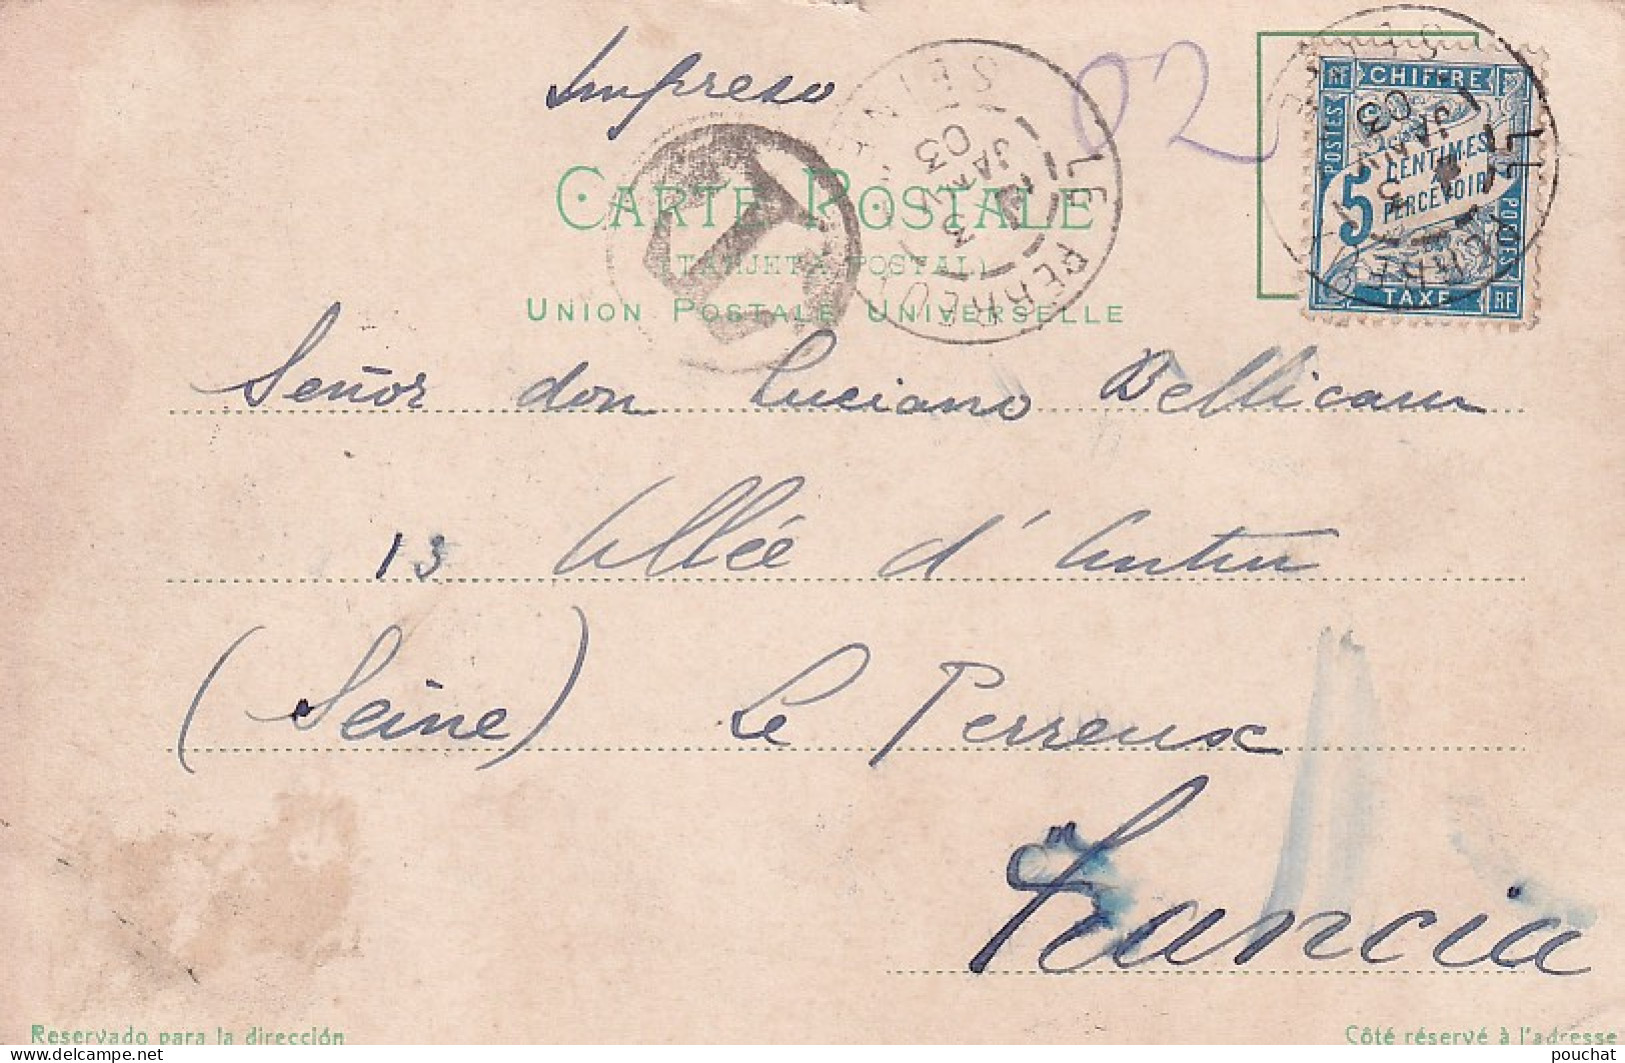 Impreso
02
CARTE POSTALE
(TARJETA POSTAL)
UNION POSTALE UNIVERSELLE
T
LE PERREUX
SEINE
3
JANV
03
RF CHIFFRE
POSTES
5 CENTIMES
A PERCEVOIR
POSTES
TAXE RF
Señor don Luciano
13 Allée d'Antin
(Seine) Le Perreux
Francia
Reservado para la dirección
Côté réservé à l'adresse
www.delcampe.net
pouchat